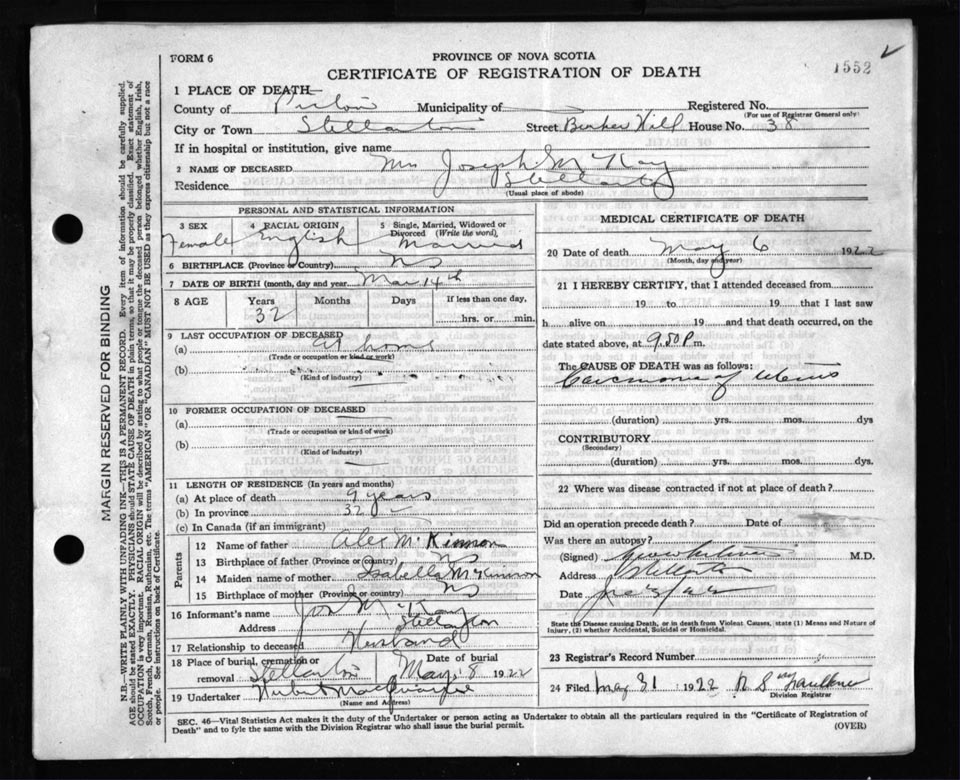 FORM 6
PROVINCE OF NOVA SCOTIA
CERTIFICATE OF REGISTRATION OF DEATH
1552
1 PLACE OF DEATH
County of Pictou Municipality of Registered No.
(For use of Registrar General only)
City or Town Stellarton Street House No. 38
If in hospital or institution, give name
2 NAME OF DECEASED Mrs Joseph McKay
Residence Stellarton
(Usual place of abode)
PERSONAL AND STATISTICAL INFORMATION
3 SEX 4 RACIAL ORIGIN 5 Single, Married, Widowed or Divorced (Write the word),
Female English Married
6 BIRTHPLACE (Province or Country) NS
7 DATE OF BIRTH (month, day and year) Mar 14th
8 AGE Years Months Days If less than one day,
32 hrs. or min.
9 LAST OCCUPATION OF DECEASED
(a) At home
(Trade or occupation or kind of work)
(b)
(Kind of industry)
10 FORMER OCCUPATION OF DECEASED
(a)
(Trade or occupation or kind of work)
(b)
(Kind of industry)
11 LENGTH OF RESIDENCE (In years and months)
(a) At place of death 9 years
(b) In province 32
(c) In Canada (if an immigrant)
Parents
12 Name of father Alec McKinnon
13 Birthplace of father (Province or country) NS
14 Maiden name of mother Isabella McKinnon
15 Birthplace of mother NS
16 Informant's name Jos McKay
Address Stellarton
17 Relationship to deceased Husband
18 Place of burial, cremation or removal Stellarton Date of burial May 8 1922
19 Undertaker
(Name and Address)
MEDICAL CERTIFICATE OF DEATH
20 Date of death May 6 1922
(Month, day and year)
21 I HEREBY CERTIFY, that I attended deceased from
19 to 19 that I last saw
h alive on 19 and that death occurred, on
date stated above, at 9.50 P.m.
The CAUSE OF DEATH was as follows:
Carcinoma of Uterus
(duration) yrs. mos. dys
CONTRIBUTORY
(Secondary)
(duration) yrs. mos. dys.
22 Where was disease contracted if not at place of death?
Did an operation precede death? Date of
Was there an autopsy?
(Signed) M.D.
Address Stellarton
Date
State the Disease causing Death, or in death from Violent Causes, state (1) Means and Nature of
Injury, (2) whether Accidental, Suicidal or Homicidal.
23 Registrar's Record Number
24 Filed May 31 1922 Faulkner
Division Registrar
SEC. 46—Vital Statistics Act makes it the duty of the Undertaker or person acting as Undertaker to obtain all the particulars required in the "Certificate of Registration of
Death" and to fyle the same with the Division Registrar who shall issue the burial permit.
(OVER)
MARGIN RESERVED FOR BINDING
N.B.—WRITE PLAINLY WITH UNFADING INK—THIS IS A PERMANENT RECORD. Every item of information should be carefully supplied.
AGE should be stated EXACTLY. PHYSICIANS should STATE CAUSE OF DEATH in plain terms, so that it may be properly classified. Exact statement of
OCCUPATION is very important. RACIAL ORIGIN will be described by stating to what people or tongue the deceased person belonged whether English, Irish,
Scotch, French, German, Russian, Ruthenian, etc. The terms "AMERICAN" OR "CANADIAN" MUST NOT BE USED as they express citizenship but not a race
or people. See instructions on back of Certificate.